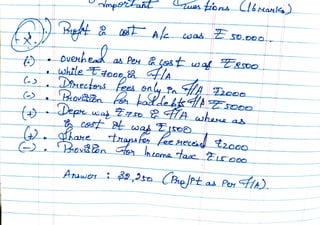 Important Questions (16 Marks)
Profit & cost A/c was ₹ 50,000.
(-) • overhead as per & cost was ₹ 8500
• while ₹ 7000 & F/A
(-) • Directors fees only in F/A ₹2000
(-) • Provision for bad debts F/A ₹5000
(+) • Depr. was ₹ 750 & F/A where as
& cost it was ₹ 1500
(+) • Share transfer fee received ₹2000
(-) • Provision for Income tax ₹15000
Answer : 32,250 (Profit as per F/A).